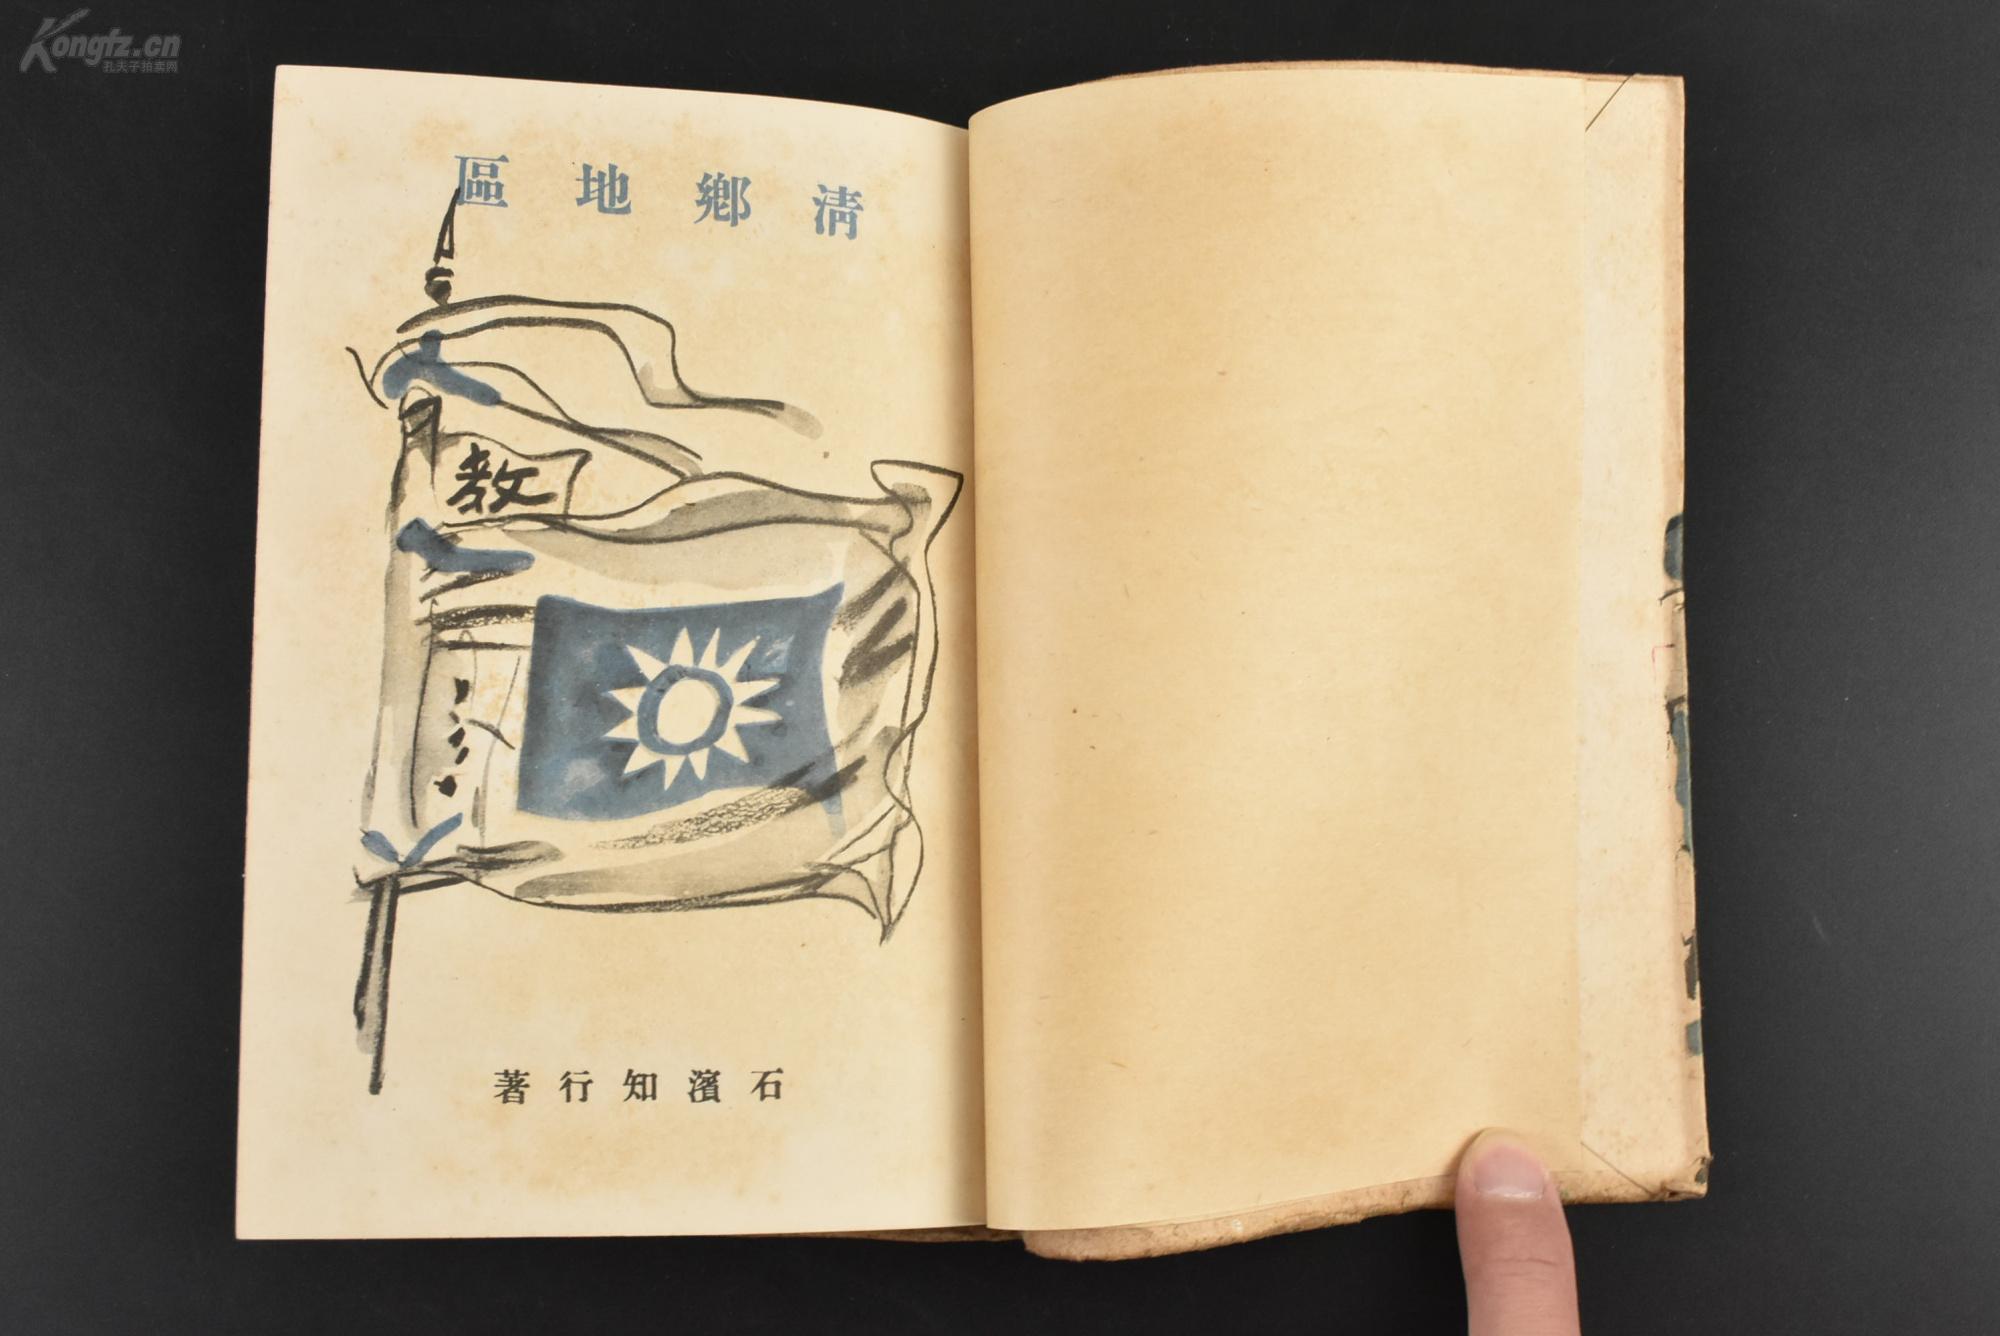 Kongfz.cn
孔夫子拍卖网
清鄉地區
教
石濱知行著